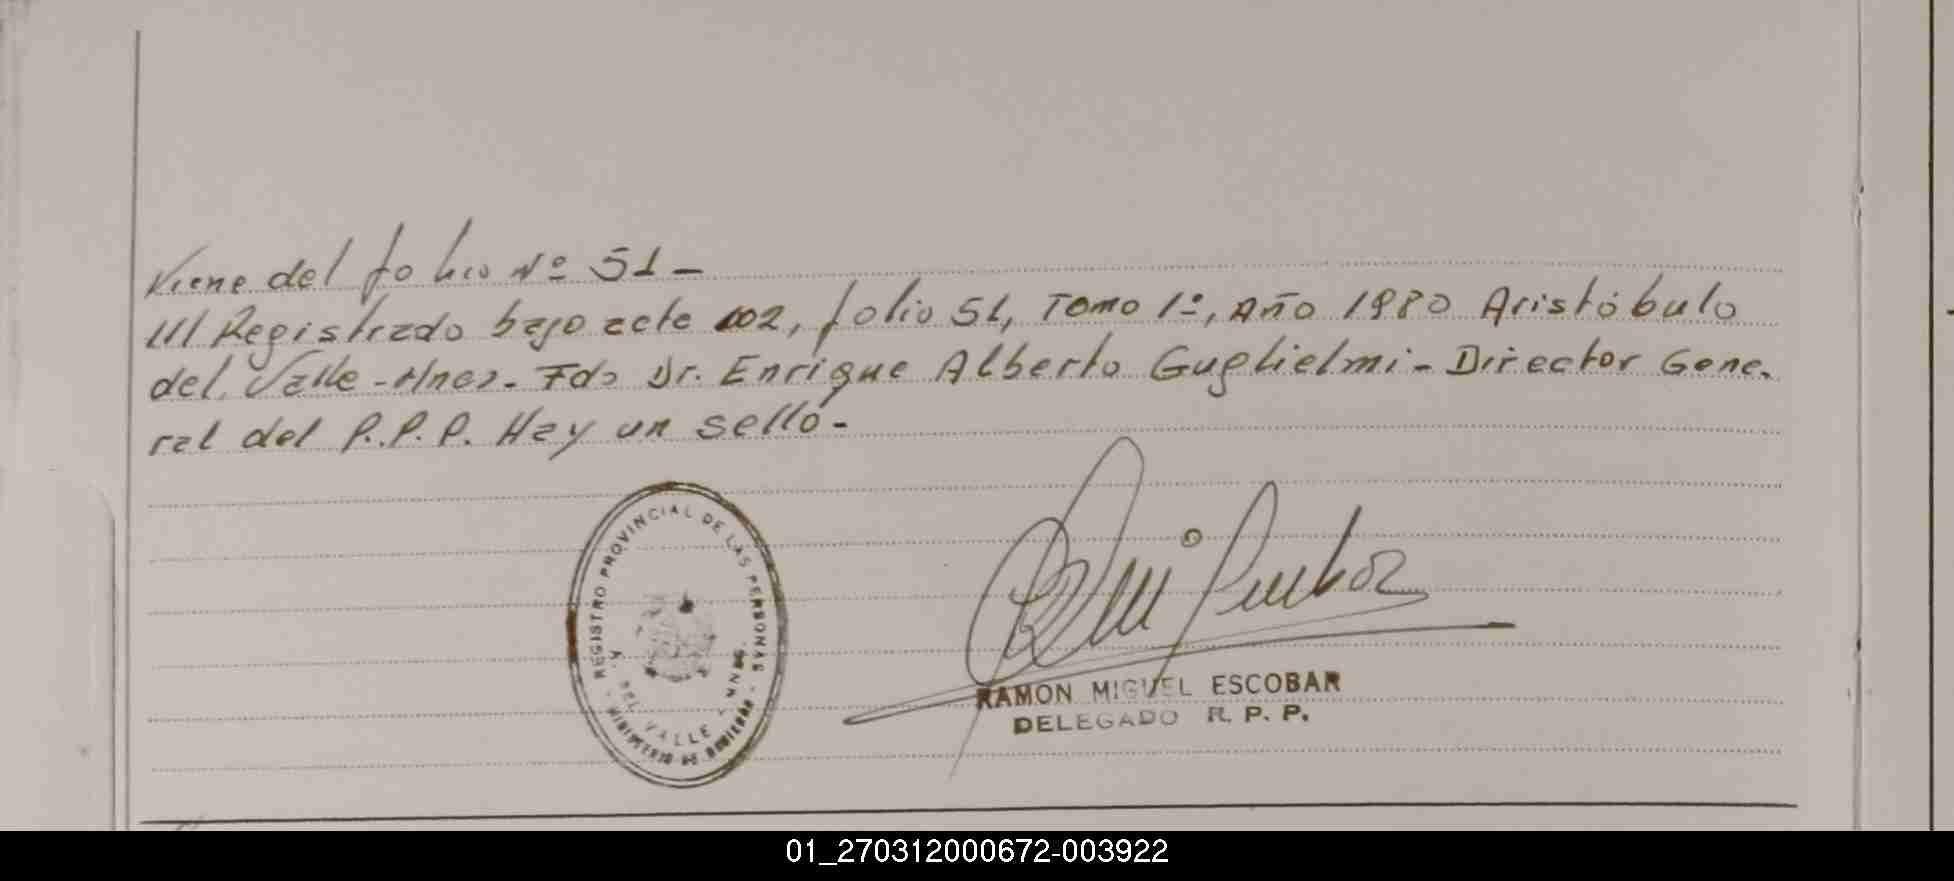 Viene del folio Nº 51 -
/// Registrado bajo acta 002, folio 51, Tomo 1º, Año 1980 Aristóbulo
del Valle - Mnes. - Fdo Dr. Enrique Alberto Guglielmi - Director Gene.
ral del P.P.P. Hay un sello -
REGISTRO PROVINCIAL DE LAS PERSONAS
A. DEL VALLE - MNES.
MINISTERIO DE GOBIERNO
RAMON MIGUEL ESCOBAR
DELEGADO R. P. P.
01_270312000672-003922